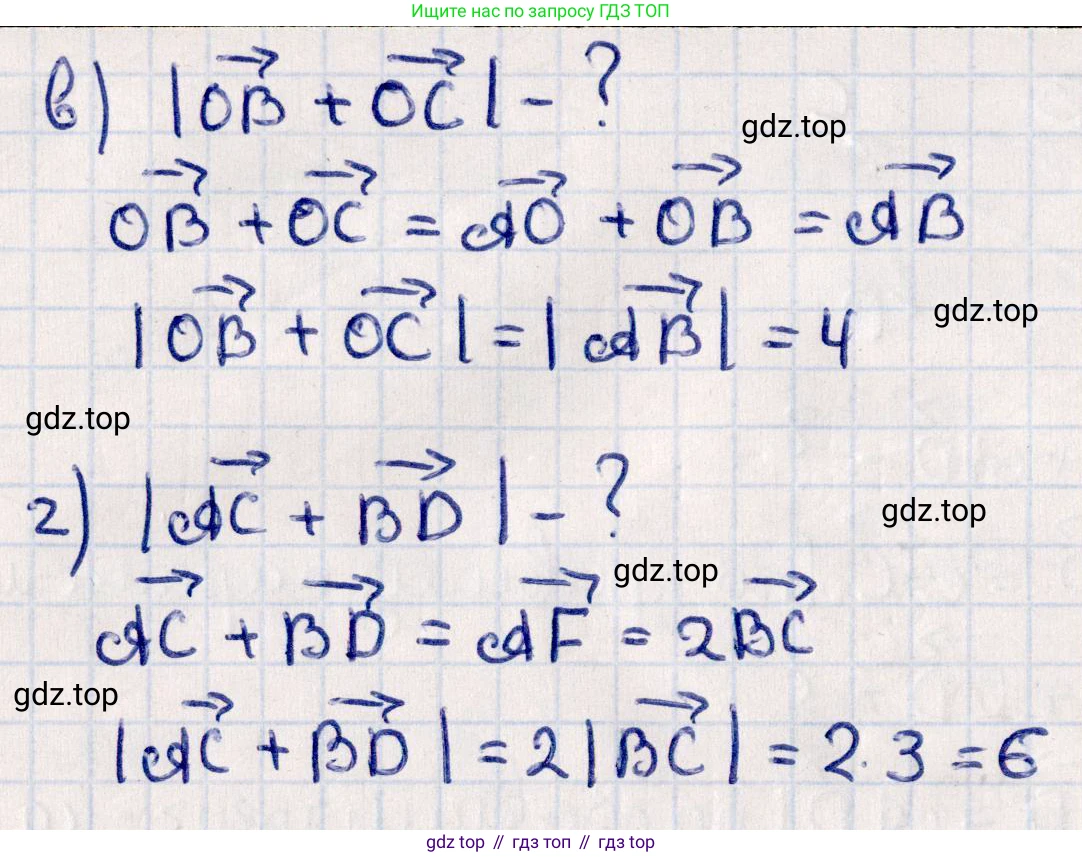 Ищите нас по запросу ГДЗ ТОП
в) |OB⃗ + OC⃗| - ?
gdz.top
OB⃗ + OC⃗ = AO⃗ + OB⃗ = AB⃗
|OB⃗ + OC⃗| = |AB⃗| = 4
gdz.top
gdz.top
г) |AC⃗ + BD⃗| - ?
gdz.top
gdz.top
AC⃗ + BD⃗ = AF⃗ = 2BC⃗
gdz.top
|AC⃗ + BD⃗| = 2|BC⃗| = 2·3 = 6
gdz top // гдз топ // gdz top